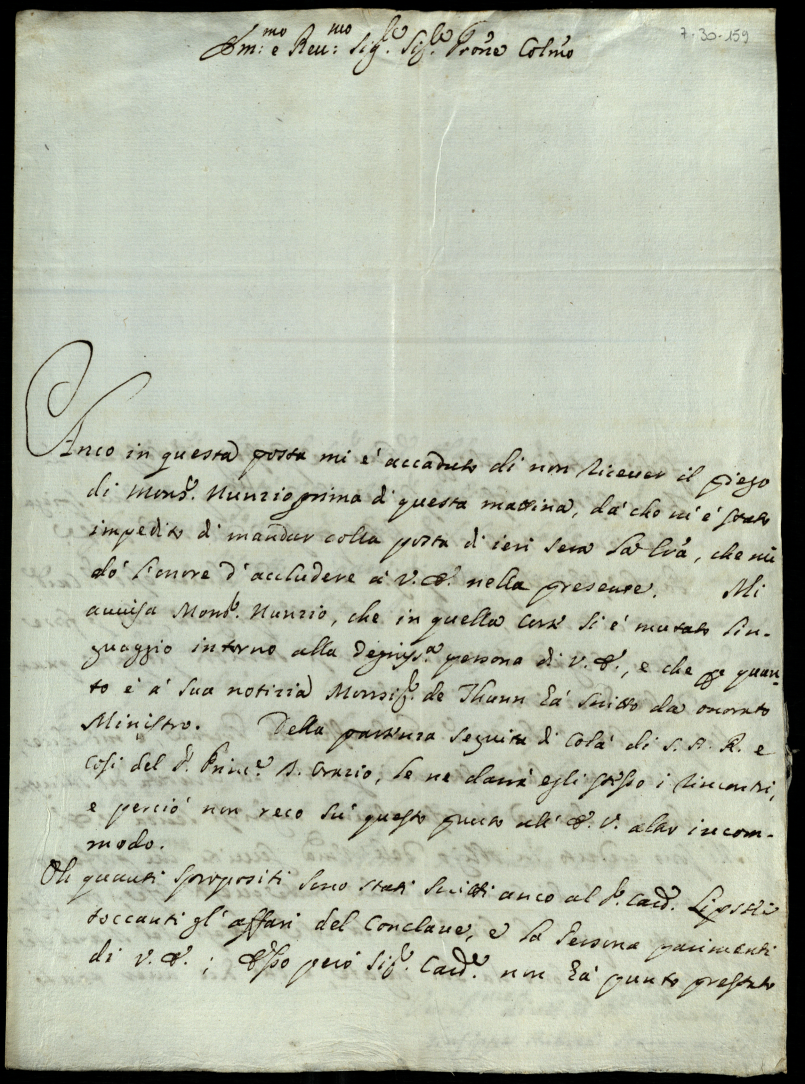 7-30-159
Em:mo e Reu:mo Sigre. Sigre. Prone Colmo
Anco in questa posta mi è accaduto di non riceuer il piego
di Monsr. Nunzio prima di questa mattina, da che mi è stato
impedito di mandar colla posta di ieri sera la lra, che mi
dò l'onore d'accludere a V. E. nella presente. Mi
auuisa Monsr. Nunzio, che in quella Corte si è mutato lin-
guaggio intorno alla degnissa. persona di V. E., e che per quan-
to è à sua notizia Monsigr. de Thunn hà scritto da onorato
Ministro. Della partenza seguita di colà di S. A. R. e
così del Sr. Princ.e D. Orazio, le ne darà egli stesso i rincontri,
e perciò non reco sù questo punto all' E. V. altro incom-
modo.
Oh quanti spropositi sono stati scritti anco al Sr. Card. Lipski
toccanti gl'affari del Conclaue, e la Persona parimenti
di V. E.; Esso però Sigr. Carde. non hà punto prestato